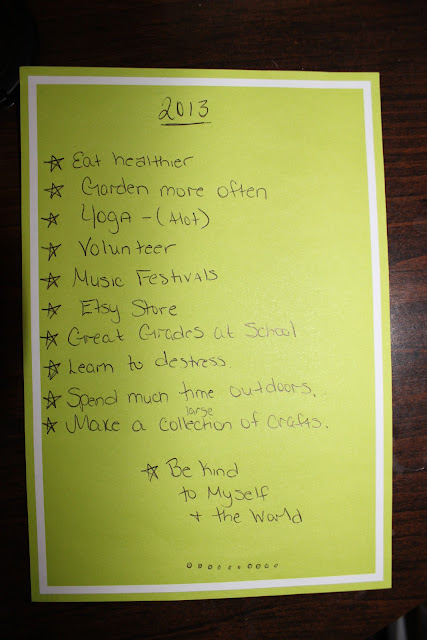 2013
☆ Eat healthier
☆ Garden more often
☆ Yoga - (Hot)
☆ Volunteer
☆ Music Festivals
☆ Etsy Store
☆ Great Grades at School
☆ Learn to destress.
☆ Spend much time outdoors.
large
☆ Make a collection of crafts.
☆ Be Kind
to Myself
+ the World